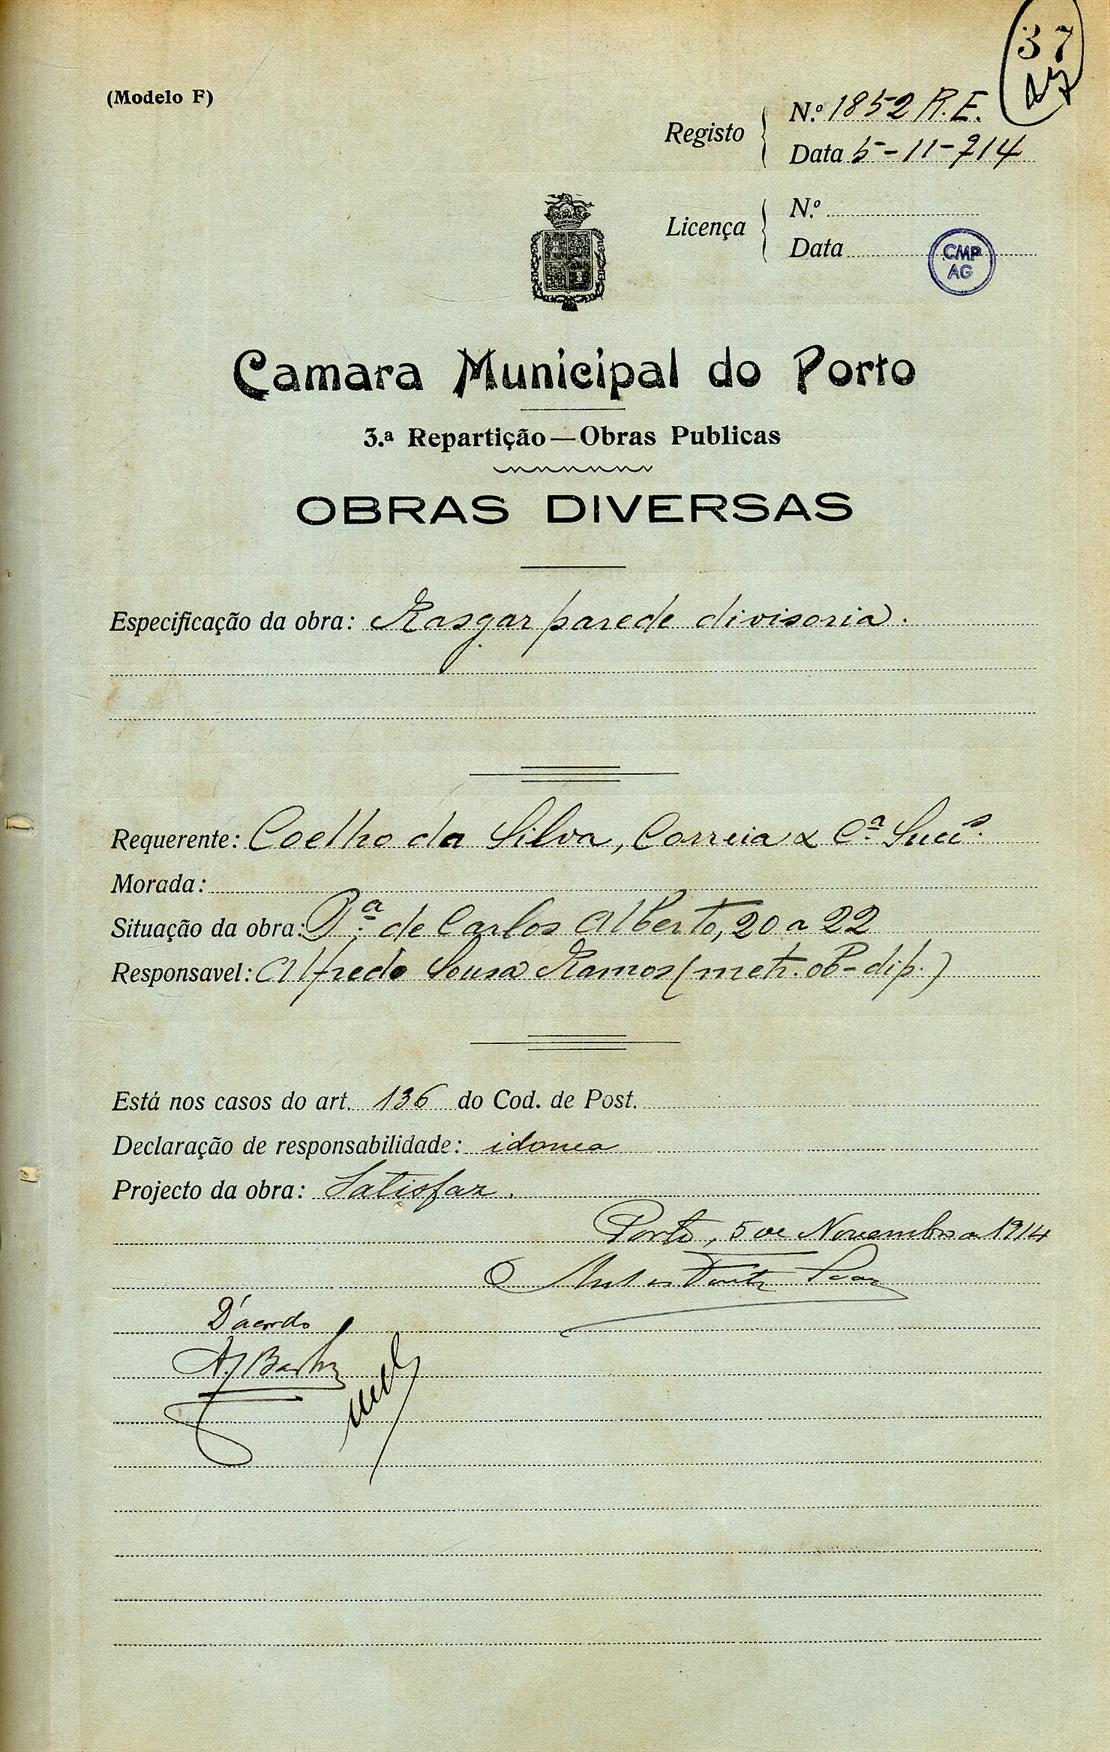 37
(Modelo F)
Registo
N.º 1852 R.E.
Data 5-11-914
Licença
N.º
Data
CMP
AG
Camara Municipal do Porto
3.ª Repartição—Obras Publicas
OBRAS DIVERSAS
Especificação da obra: Rasgar parede divisoria.
Requerente: Coelho da Silva, Correia & C.ª Succ.s
Morada:
Situação da obra: P.ª de Carlos Alberto, 20 a 22
Responsavel: Alfredo Sousa Ramos (metr. ob-dip.)
Está nos casos do art. 136 do Cod. de Post.
Declaração de responsabilidade: idonea
Projecto da obra: Satisfaz.
Porto, 5 de Novembro de 1914
O
D'acordo